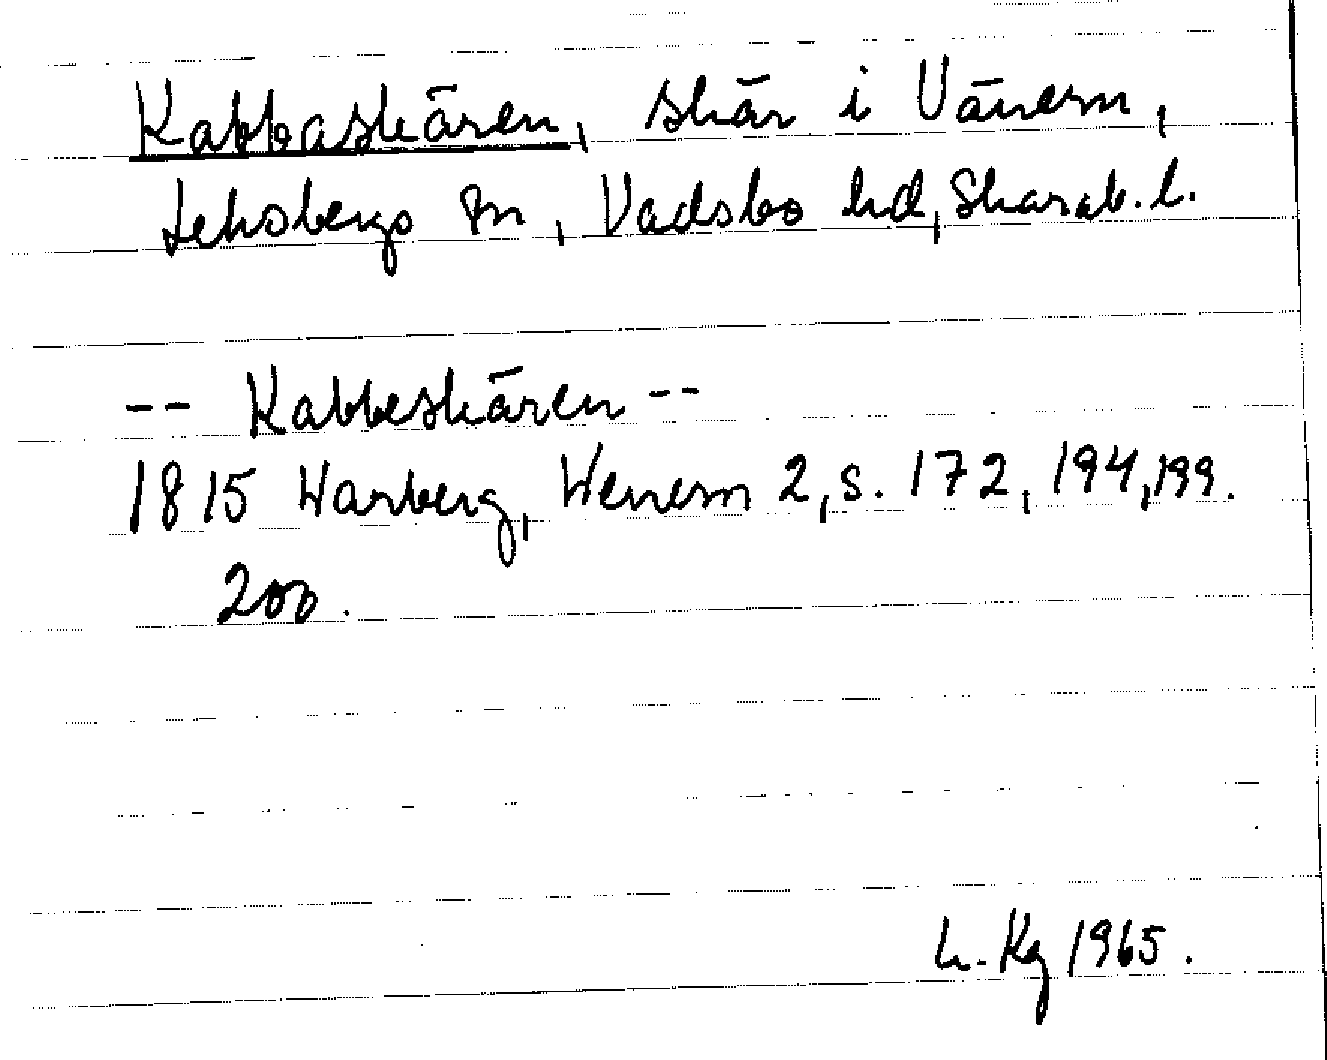 Kabbaskären, skär i Vänern,
Leksbergs sn, Vadsbo hd, Skarab. l.
-- Kabbeskären --
1815 Warberg, Wenern 2, s. 172, 194, 199.
200.
L. Kg 1965.